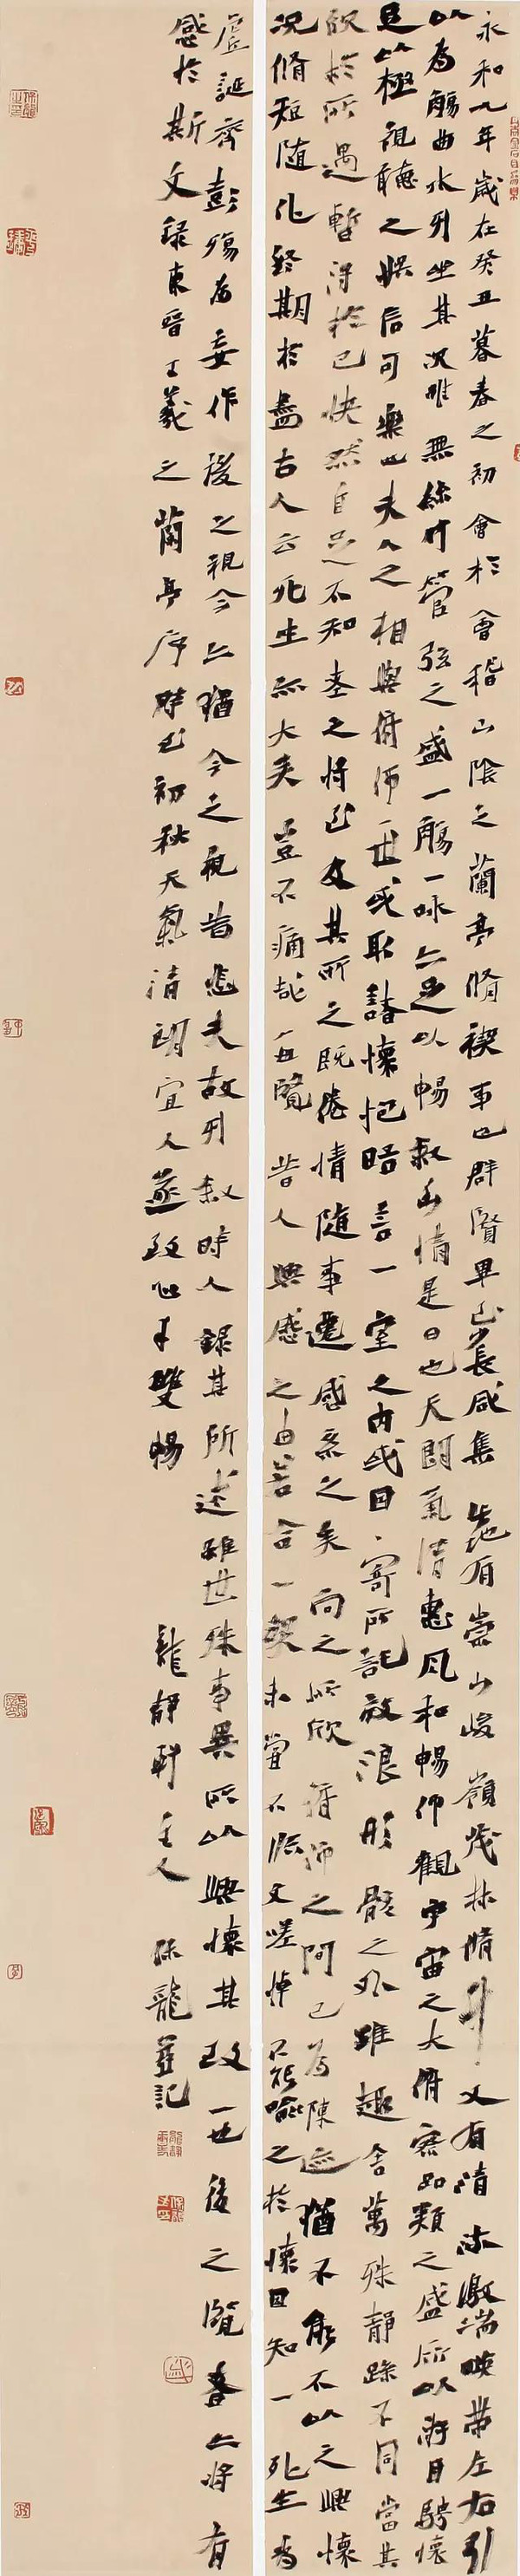 永和九年歲在癸丑暮春之初會於會稽山陰之蘭亭脩禊事也群賢畢至少長咸集此地有崇山峻嶺茂林脩竹又有清流激湍映帶左右引
以為觴曲水列坐其次雖無絲竹管弦之盛一觴一詠亦足以暢敘幽情是日也天朗氣清惠風和暢仰觀宇宙之大俯察品類之盛所以游目騁懷
足以極視聽之娛信可樂也夫人之相與俯仰一世或取諸懷抱晤言一室之內或因寄所託放浪形骸之外雖趣舍萬殊靜躁不同當其
欣於所遇暫得於己快然自足不知老之將至及其所之既倦情隨事遷感系之矣向之所欣俯仰之間已為陳迹猶不能不以之興懷
況脩短隨化終期於盡古人云死生亦大矣豈不痛哉每覽昔人興感之由若合一契未嘗不臨文嗟悼不能喻之於懷固知一死生為
虛誕齊彭殤為妄作後之視今亦猶今之視昔悲夫故列敘時人錄其所述雖世殊事異所以興懷其致一也後之覽者亦將有
感於斯文錄東晉王羲之蘭亭序時至初秋天氣清朗宜人遂致心手雙暢 龍靜軒主人 保龍並記